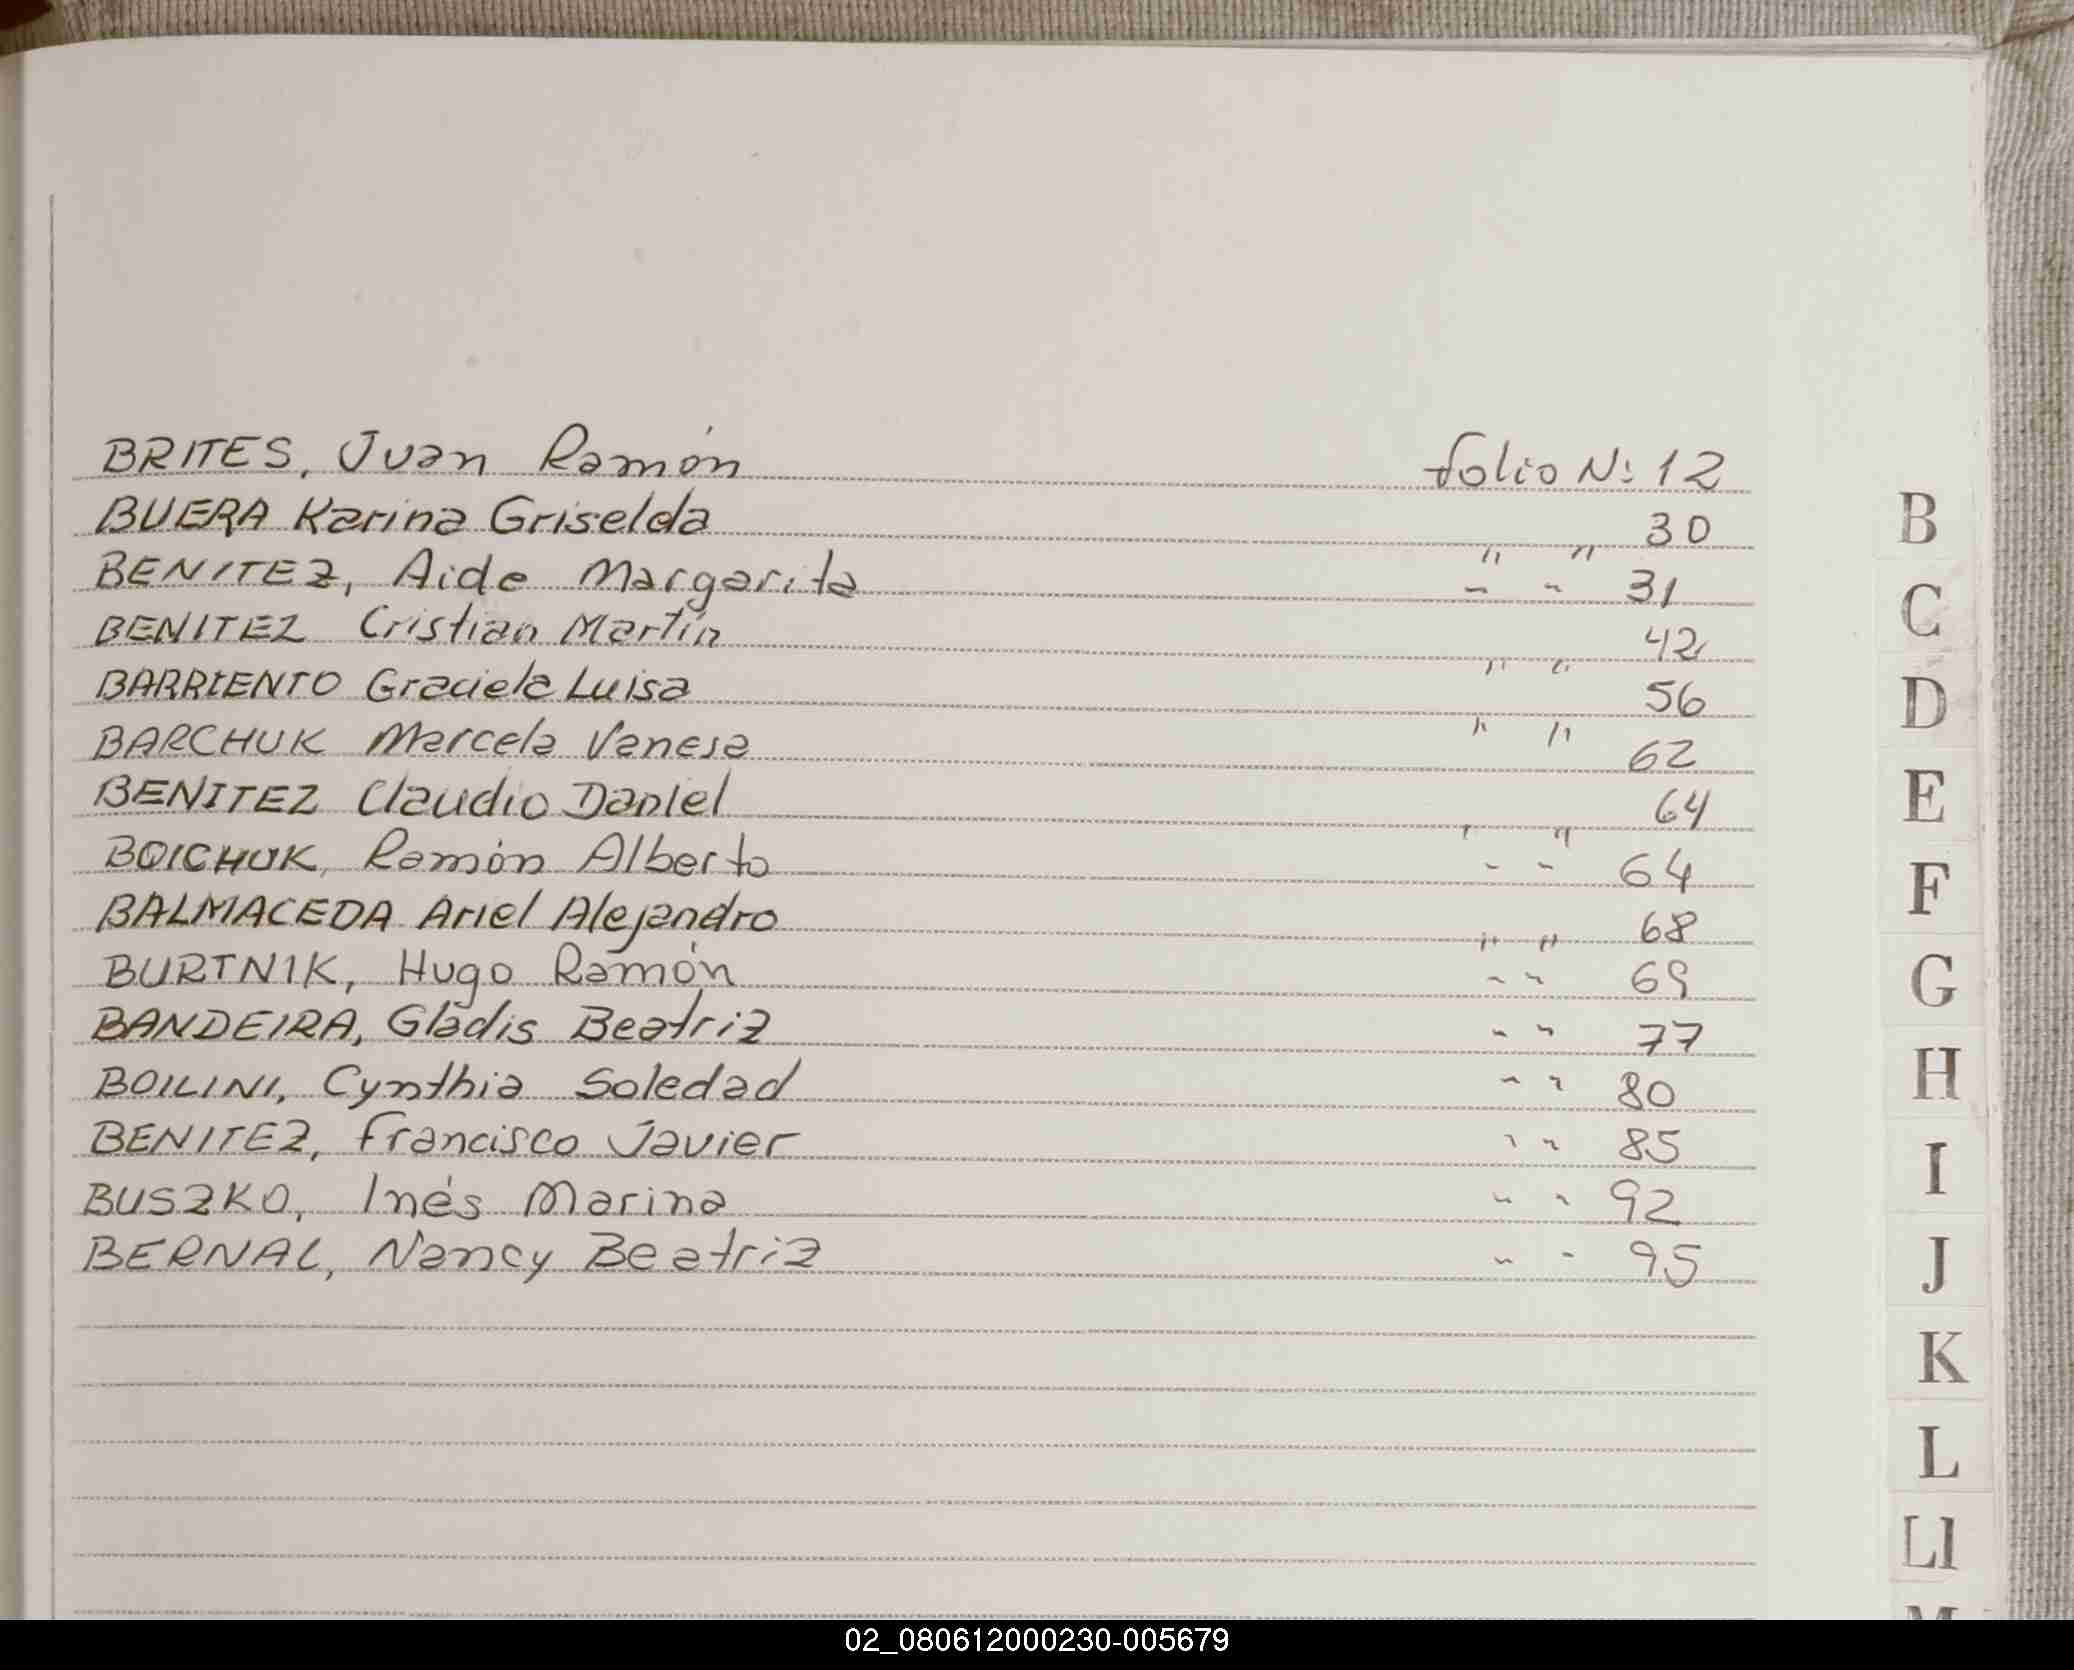 BRITES, Juan Ramón folio Nº: 12
BUERA Karina Griselda " " 30
BENITEZ, Aide Margarita " " 31
BENITEZ Cristian Martín " " 42
BARRIENTO Graciela Luisa " " 56
BARCHUK Marcela Vanesa 62
BENITEZ Claudio Daniel " " 64
BOICHUK, Ramón Alberto " " 64
BALMACEDA Ariel Alejandro " " 68
BURTNIK, Hugo Ramón " " 69
BANDEIRA, Gladis Beatriz " " 77
BOILINI, Cynthia Soledad " " 80
BENITEZ, Francisco Javier " " 85
BUSZKO, Inés Marina " " 92
BERNAL, Nancy Beatriz " " 95
B
C
D
E
F
G
H
I
J
K
L
Ll
M
02_080612000230-005679